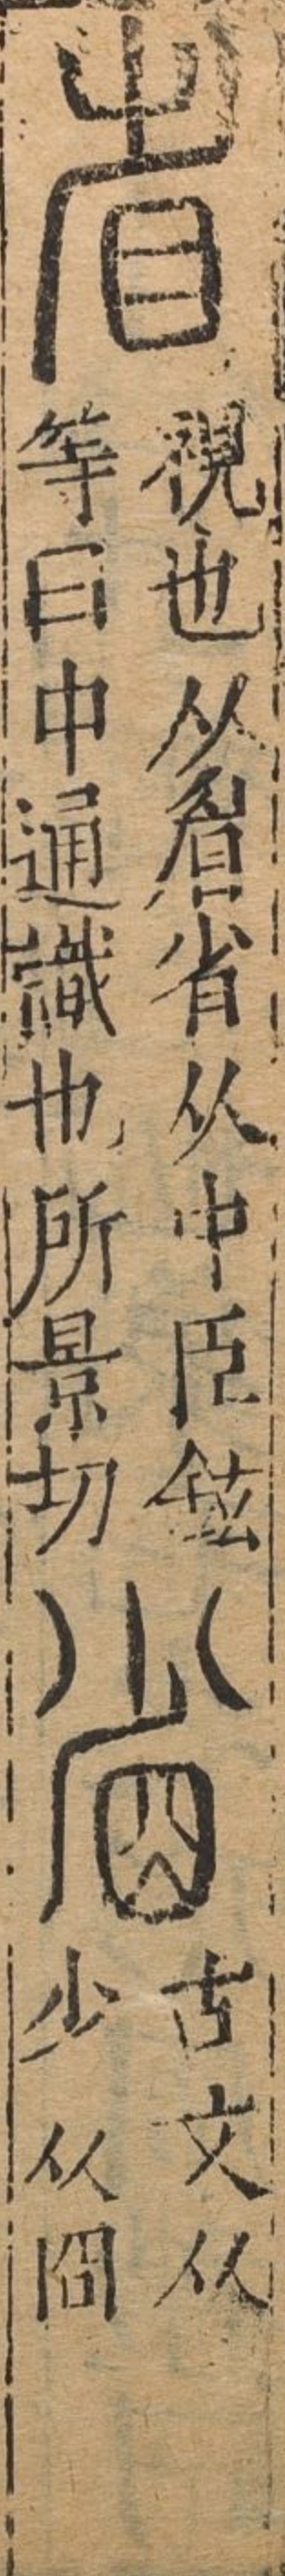 㗂視也从眉省从屮臣鉉
等曰屮通識也所景切
𡮐古文从
少从囧